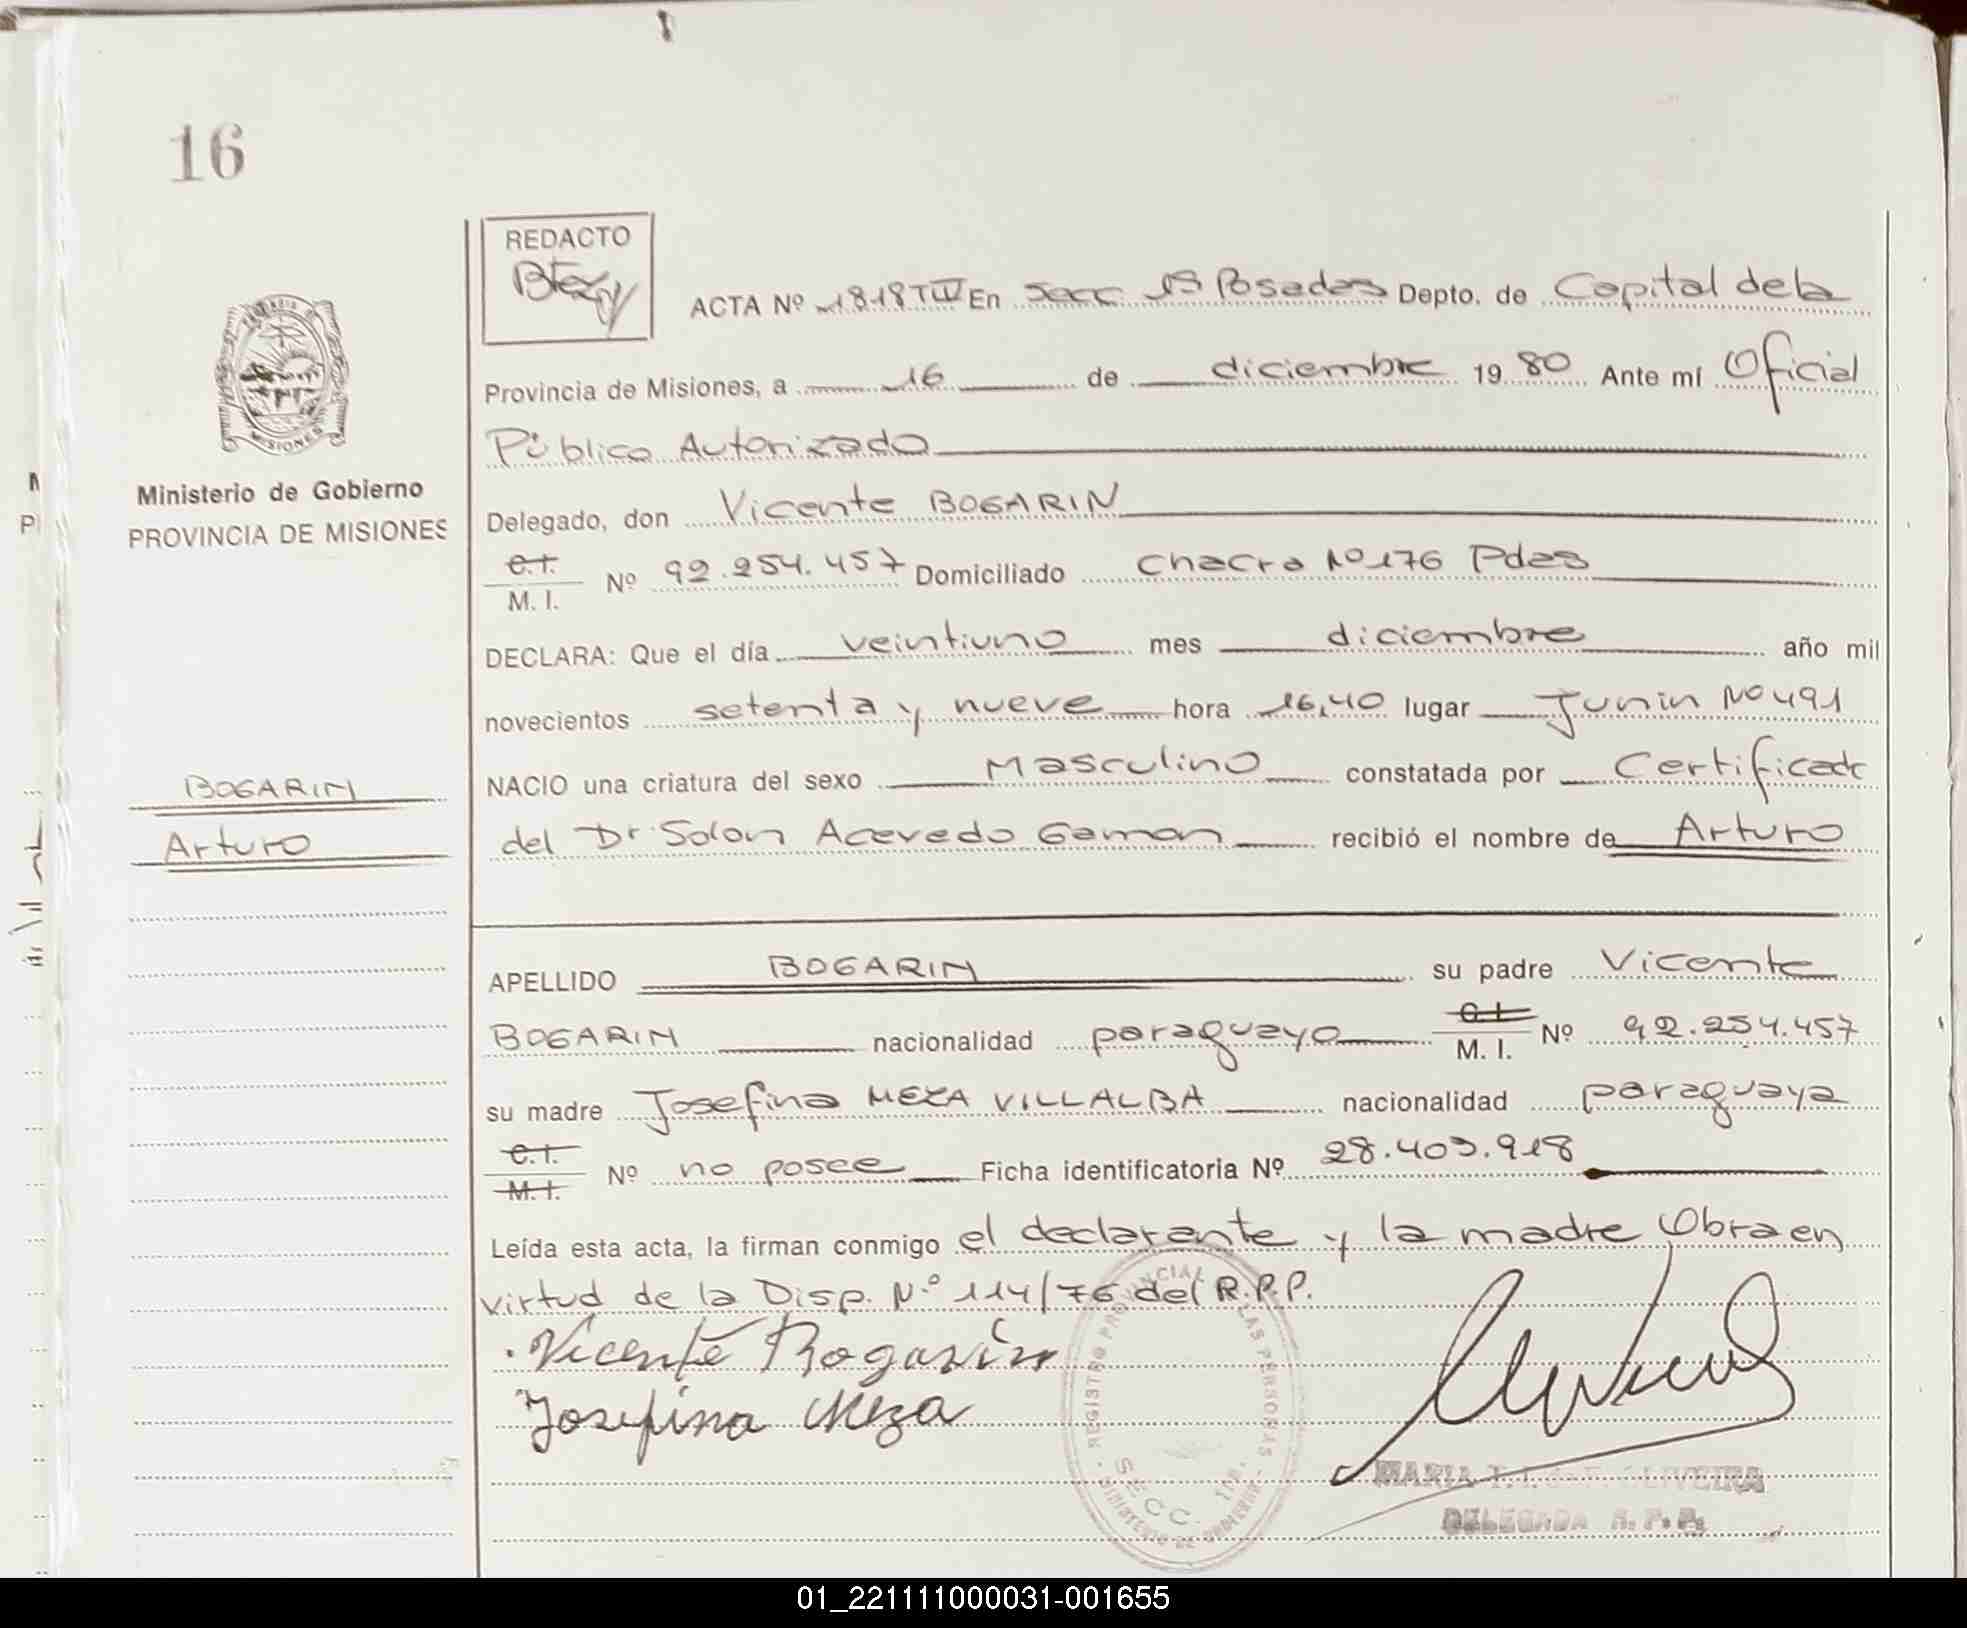 16
REDACTO
ACTA Nº 1818 TIV En Secc 1ª Posadas Depto. de Capital de la
Provincia de Misiones, a 16 de diciembre 19 80 Ante mí Oficial
Público Autorizado
Ministerio de Gobierno
PROVINCIA DE MISIONES
Delegado, don Vicente BOGARIN
C.I.
M. I. Nº 92.254.457 Domiciliado Chacra Nº 176 Pdas
DECLARA: Que el día veintiuno mes diciembre año mil
novecientos setenta y nueve hora 16,40 lugar Junin Nº 491
NACIO una criatura del sexo Masculino constatada por Certificado
del Dr Solon Acevedo Gamon recibió el nombre de Arturo
BOGARIN
Arturo
APELLIDO BOGARIN su padre Vicente
BOGARIN nacionalidad paraguayo C.I.
M. I. Nº 92.254.457
su madre Josefina MEZA VILLALBA nacionalidad paraguaya
C.I.
M.I. Nº no posee Ficha identificatoria Nº 28.403.918
Leída esta acta, la firman conmigo el declarante y la madre Obra en
virtud de la Disp. N.º 114/76 del R.P.P.
Vicente Bogarin
Josefina Meza
REGISTRO PROVINCIAL DE LAS PERSONAS
SECC. 1ra.
MINISTERIO DE GOBIERNO
MARIA OLIVEIRA
DELEGADA R. P. P.
01_221111000031-001655